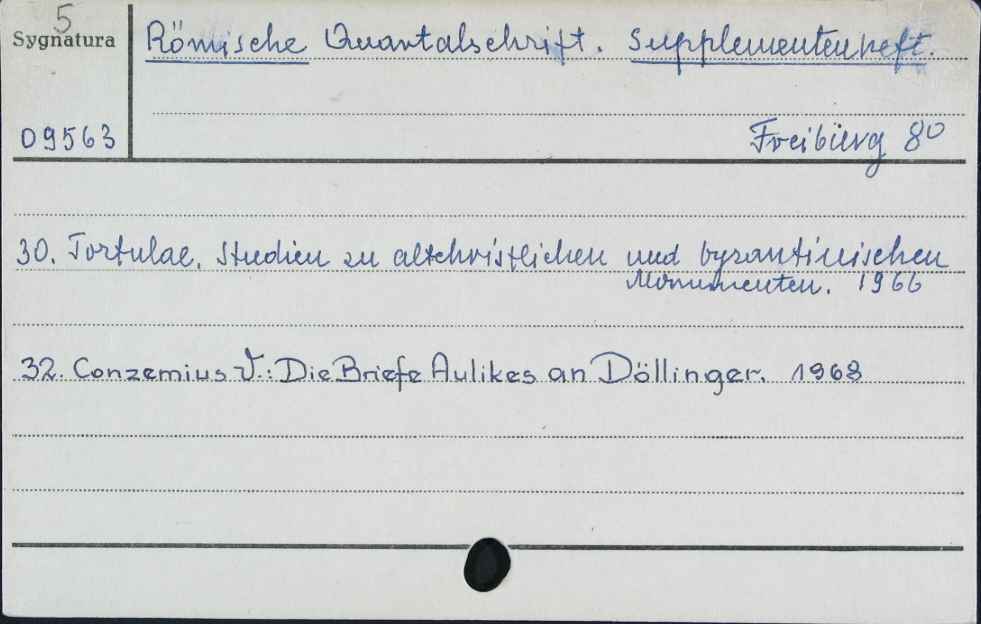 5
Sygnatura
Römische Quartalschrift. Supplementenheft.
09563
Freibürg 80
30. Tortulae. Studien zu altchristlichen und byzantinischen
Monumenten. 1966
32. Conzemius V.: Die Briefe Aulikes an Döllinger. 1968